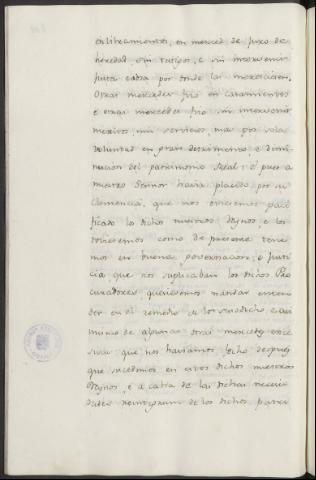 en libramientos, en merced de juro de
heredad, sin razon, e sin intervenir
justa cabsa por donde las mereciesen.
Otras mercedes fizo en casamientos
e otras mercedes fizo sin intervenir
meritos, nin servicios, mas por sola
voluntad en gran detrimento, e dimi-
nucion del patrimonio Real: e pues a
nuestro Señor havia placido por su
Clemencia, que nos oviesemos paci-
ficado los dichos nuestros Reynos, e los
toviesemos como de presente tene-
mos en buena governacion, e justi-
cia, que nos suplicaban los dichos Pro-
curadores, quisiesemos mandar enten-
der en el remedio de lo susodicho e asi
mismo de algunas otras mercedes
que nos haviamos fecho despues
que sucedimos en estos dichos nuestros
Reynos, e a cabsa de las dichas necesi-
dades de los dichos